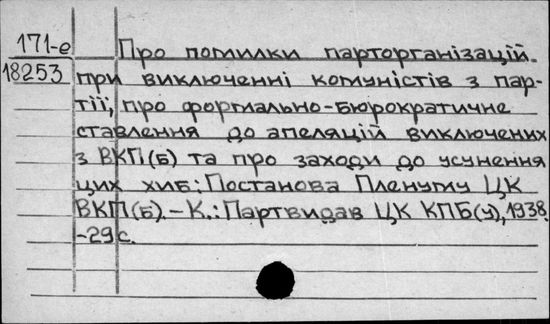 171-е
18253
Про помилки парторганізацій
при виключенні комуністів з пар-
тії, про формально-бюрократичне
ставлення до апеляцій виключених
з ВКП(б) та про заходи до усунення
цих хиб: Постанова Пленуму ЦК
ВКП(б).-К.: Партвидав ЦК КПБ(у), 1938.
-29 с.